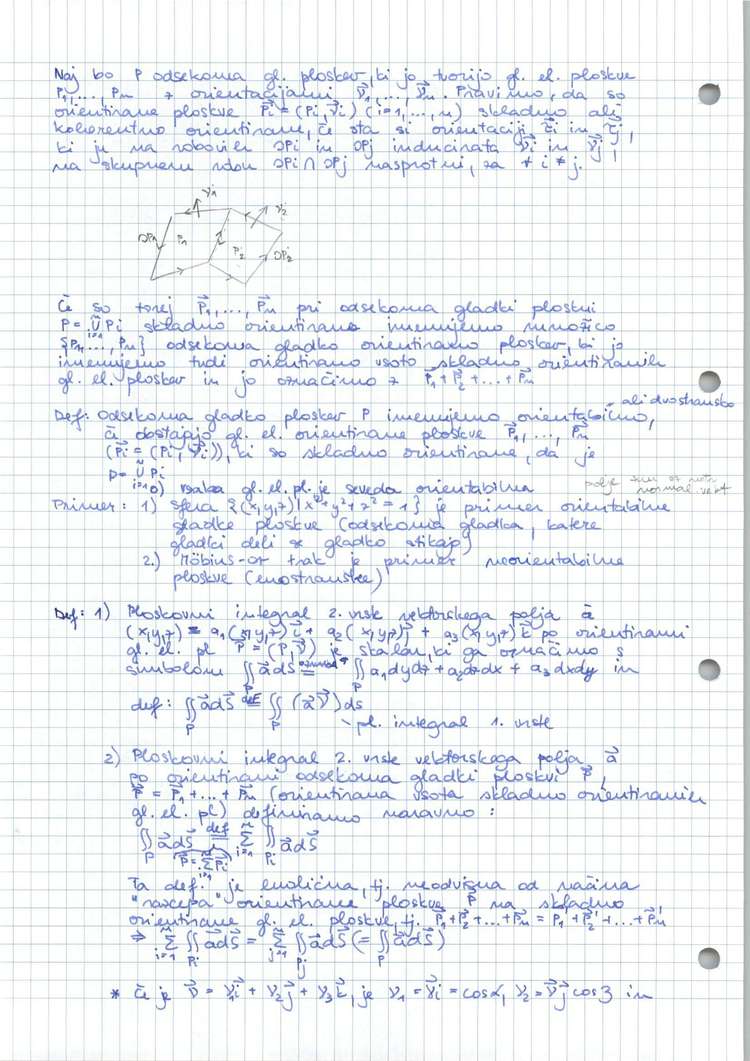 Naj bo P odsekoma gl. ploskev, ki jo tvorijo gl. el. ploskve
P₁, ..., Pₙ z orientacijami ν⃗₁, ..., ν⃗ₙ. Pravimo, da so
orientirane ploskve P⃗i = (Pi, ν⃗i) (i=1, ..., n) skladno ali
koherentno orientirane, če sta si orientaciji τ⃗i in τ⃗j,
ki ju na robovih ∂Pi in ∂Pj inducirata ν⃗i in ν⃗j,
na skupnem robu ∂Pi ∩ ∂Pj nasprotni, za ∀ i ≠ j.
ν⃗₁ ν⃗₂
∂P₁ P₁ P₂ ∂P₂
Če so torej P⃗₁, ..., P⃗ₙ pri odsekoma gladki ploskvi
P = ⋃ Pi skladno orientirane imenujemo množico
i=1
{P₁, ..., Pₙ} odsekoma gladko orientirano ploskev, ki jo
imenujemo tudi orientirano vsoto skladno orientiranih
gl. el. ploskev in jo označimo z P⃗₁ + P⃗₂ + ... + P⃗ₙ
ali dvostransko
Def: Odsekoma gladko ploskev P imenujemo orientabilno,
če obstajajo gl. el. orientirane ploskve P⃗₁, ..., P⃗ₙ
(P⃗i = (Pi, ν⃗i)), ki so skladno orientirane, da je
P = ⋃ Pi
i=1 0) vsaka gl. el. pl. je seveda orientabilna
polje normal. vekt
Primer: 1) sfera {(x,y,z) | x²+y²+z² = 1} je primer orientabilne
gladke ploskve (odsekoma gladka, katere
gladki deli se gladko stikajo)
2.) Möbius-ov trak je primer neorientabilne
ploskve (enostranske)
Def: 1) Ploskovni integral 2. vrste vektorskega polja a⃗
(x,y,z) = a₁(x,y,z) i⃗ + a₂(x,y,z) j⃗ + a₃(x,y,z) k⃗ po orientirani
gl. el. pl P⃗ = (P, ν⃗) je skalar, ki ga označimo s
simbolom ∬ a⃗ dS⃗ = ∬ a₁dydz + a₂dzdx + a₃dxdy in
P P
def: ∬ a⃗ dS⃗ def= ∬ (a⃗ ν⃗) ds
P P
pl. integral 1. vrste
2) Ploskovni integral 2. vrste vektorskega polja a⃗
po orientirani odsekoma gladki ploskvi P⃗,
P⃗ = P⃗₁ + ... + P⃗ₙ (orientirana vsota skladno orientiranih
gl. el. pl.) definiramo naravno:
∬ a⃗ dS⃗ def= Σ ∬ a⃗ dS⃗
P (P⃗ = Σ P⃗i) i=1 Pi
Ta def. je enolična, tj. neodvisna od načina
"razcepa" orientirane ploskve P⃗ na skladno
orientirane gl. el. ploskve, tj. P⃗₁ + P⃗₂ + ... + P⃗ₙ = P₁' + P₂' + ... + Pₘ'
⇒ Σ ∬ a⃗ dS⃗ = Σ ∬ a⃗ dS⃗ (= ∬ a⃗ dS⃗)
i=1 Pi j=1 Pj P
* Če je ν⃗ = ν₁i⃗ + ν₂j⃗ + ν₃k⃗, je ν₁ = ν⃗i = cosα, ν₂ = ν⃗j⃗ cosβ in